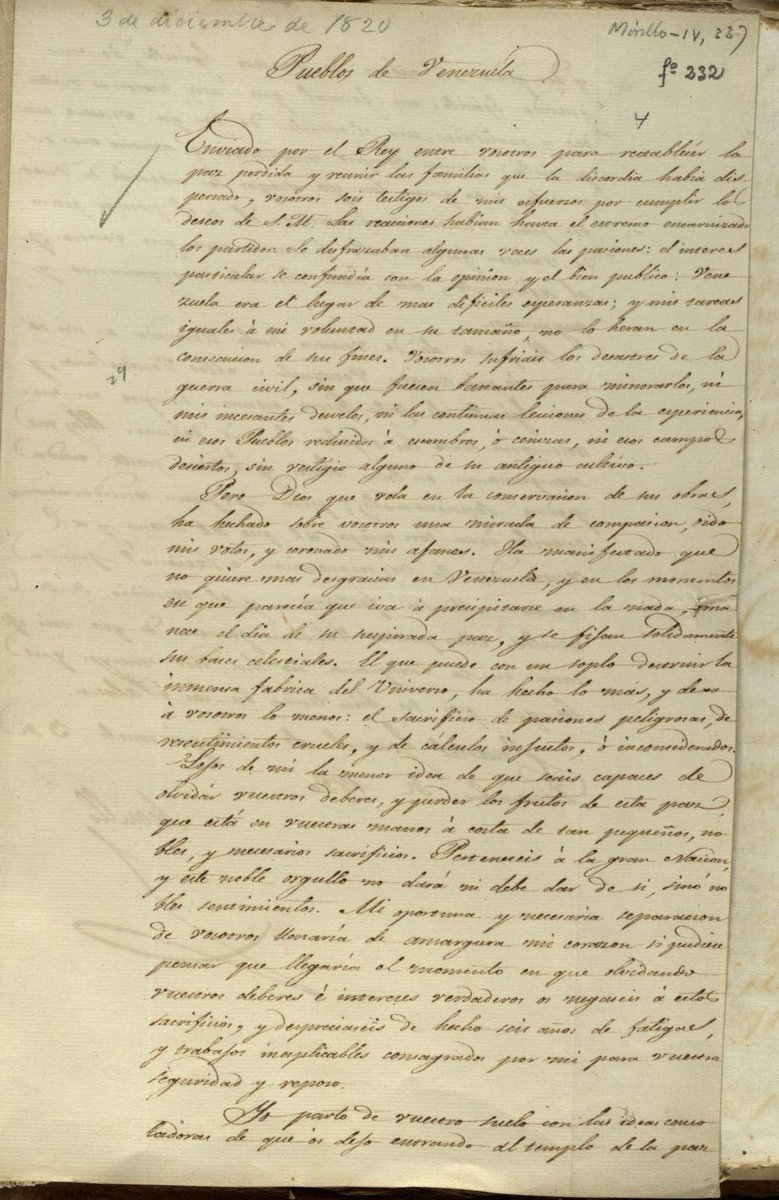 3 de diciembre de 1820
Morillo-IV, 237
fº 232
Pueblos de Venezuela
4
Enviado por el Rey entre vosotros para restablecér la
paz perdida y reunir las familias que la discordia habia dis
persado, vosotros sois testigos de mis esfuerzos por cumplir los
deseos de S. M. Las reacciones habian hasta el extremo encarnizado
los partidos. Se disfrazaban algunas veces las pasiones: el interes
particular se confundía con la opinion y el bien publico: Vene
zuela era el lugar de mas dificiles esperanzas; y mis tareas
iguales à mi voluntad en su tamaño, no lo heran en la
consecucion de sus fines. Vosotros sufriais los desastres de la
guerra civil, sin que fuesen bastantes para minorarlos, ni
mis incesantes desvelos, ni las continuas lecciones de la experiencia,
ni esos Pueblos reducidos à escombros, ó cenizas, ni esos campos
desiertos, sin vestigio alguno de su antiguo cultivo.
29
Pero Dios que vela en la conservacion de sus obras,
ha hechado sobre vosotros una mirada de compasion, oido
mis votos, y coronado mis afanes. Ha manifestado que
no quiere mas desgracias en Venezuela, y en los momentos
en que parecía que iva à precipitarse en la nada, ama
nece el dia de su suspirada paz, y se fijan solidamente
sus bases celestiales. El que puede con un soplo destruir la
inmensa fabrica del Universo, ha hecho lo mas, y dexa
à vosotros lo menos: el sacrificio de pasiones peligrosas, de
resentimientos crueles, y de cálculos injustos, ò inconsiderados.
Lejos de mi la menor idea de que seais capaces de
olvidár vuestros deberes, y perder los frutos de esta paz,
que está en vuestras manos à costa de tan pequeños, no
bles, y necesarios sacrificios. Perteneceis à la gran Nacion,
y este noble orgullo no dará ni debe dar de si, sinó no
bles sentimientos. Mi oportuna y necesaria separacion
de vosotros llenaría de amargura mi corazon si pudiese
pensar que llegaría el momento en que olvidando
vuestros deberes è intereses verdaderos os negaseis à estos
sacrificios, y despreciaseis de hecho seis años de fatigas,
y trabajos inaplicables consagrados por mi para vuestra
seguridad y reposo.
Yo parto de vuestro suelo con las ideas conso
ladoras de que os dejo entrando al templo de la paz